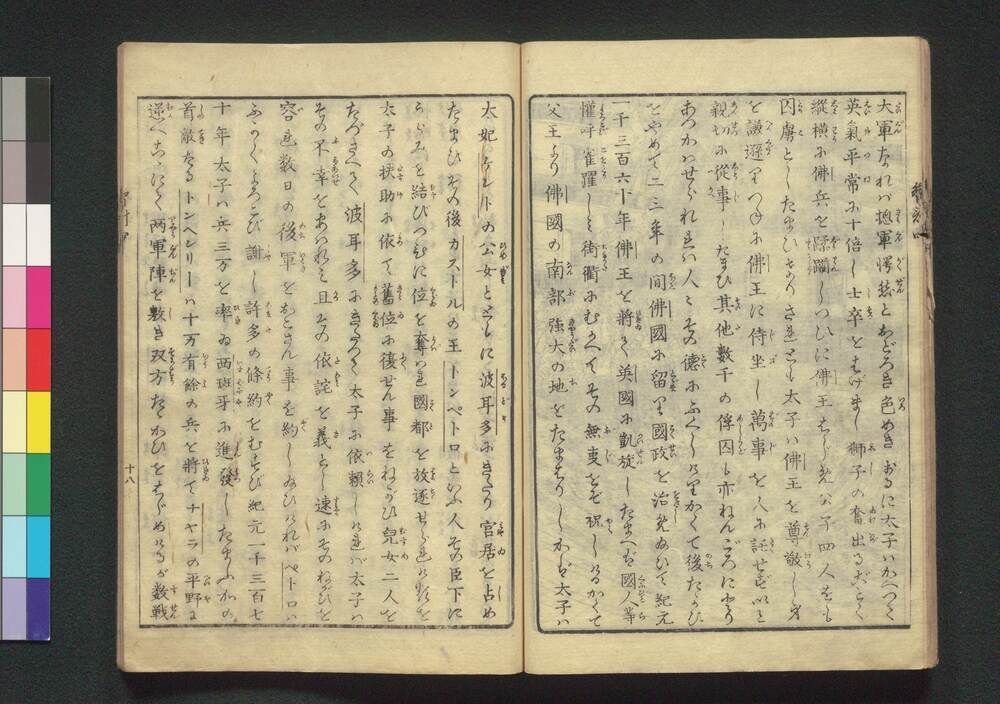 大軍なれバ惣軍愕然とおどろき色めきあるに太子ハかへつて
英氣平常に十倍し士卒をはげまし獅子の奮出るごとく
縦横に佛兵を蹂躙しつひに佛王ならびに公子四人をも
囚虜としたまひけりされども太子ハ佛王を尊敬し身
を謙遜りつねに佛王に侍坐し萬事を人に託せず以と
親切に從事したまひ其他数千の俘囚も亦ねんごろにとり
あつかはせられれバ人々その德にふくしけりかくて後たゝかひ
をやめて二三年の間佛國に留り國政を治めゐひて紀元
一千三百六十年佛王を將て英國に凱旋したまへバ國人等
懽呼雀躍して街衢にむかへてその無事をぞ祝しけるかくて
父王より佛國の南部強大の地をたまはりしかバ太子ハ
太妃ケントの公女とともに波耳多にきたり宮居を占め
たまひその後カストルの王トンペトロといふ人その臣下に
うらみを結びつひに位を奪はれ國都を放逐せられけれバ
太子の扶助に依て舊位に復せん事をねがひ兒女二人を
たづさへて波耳多にきたりて太子に依頼しけれバ太子ハ
その不幸をあはれみ且その依詫を義とし速にそのねがひを
容れ数日の後軍をおこさん事を約しゐひけれバペトロハ
ふかくよろこび謝し許多の條約をむすび紀元一千三百七
十年太子ハ兵三万を率ゐ西班牙に進發したまふにかの
首敵なるトンヘンリーハ十万有餘の兵を將てナヤラの平野に
逆へこゝにて両軍陣を敷き双方たゝかひをはじめけるが数戦
十八